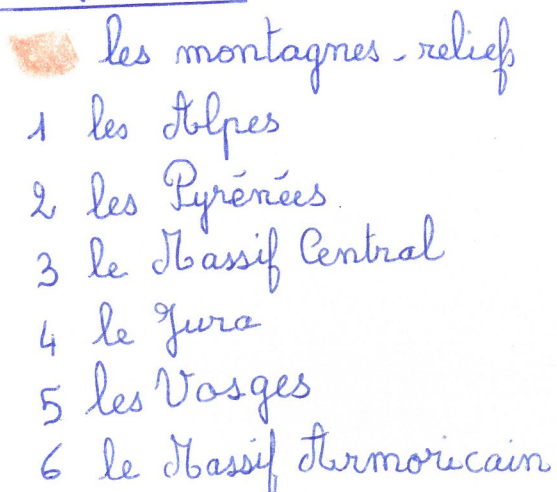 les montagnes - relief
1 les Alpes
2 les Pyrénées
3 le Massif Central
4 le Jura
5 les Vosges
6 le Massif Armoricain